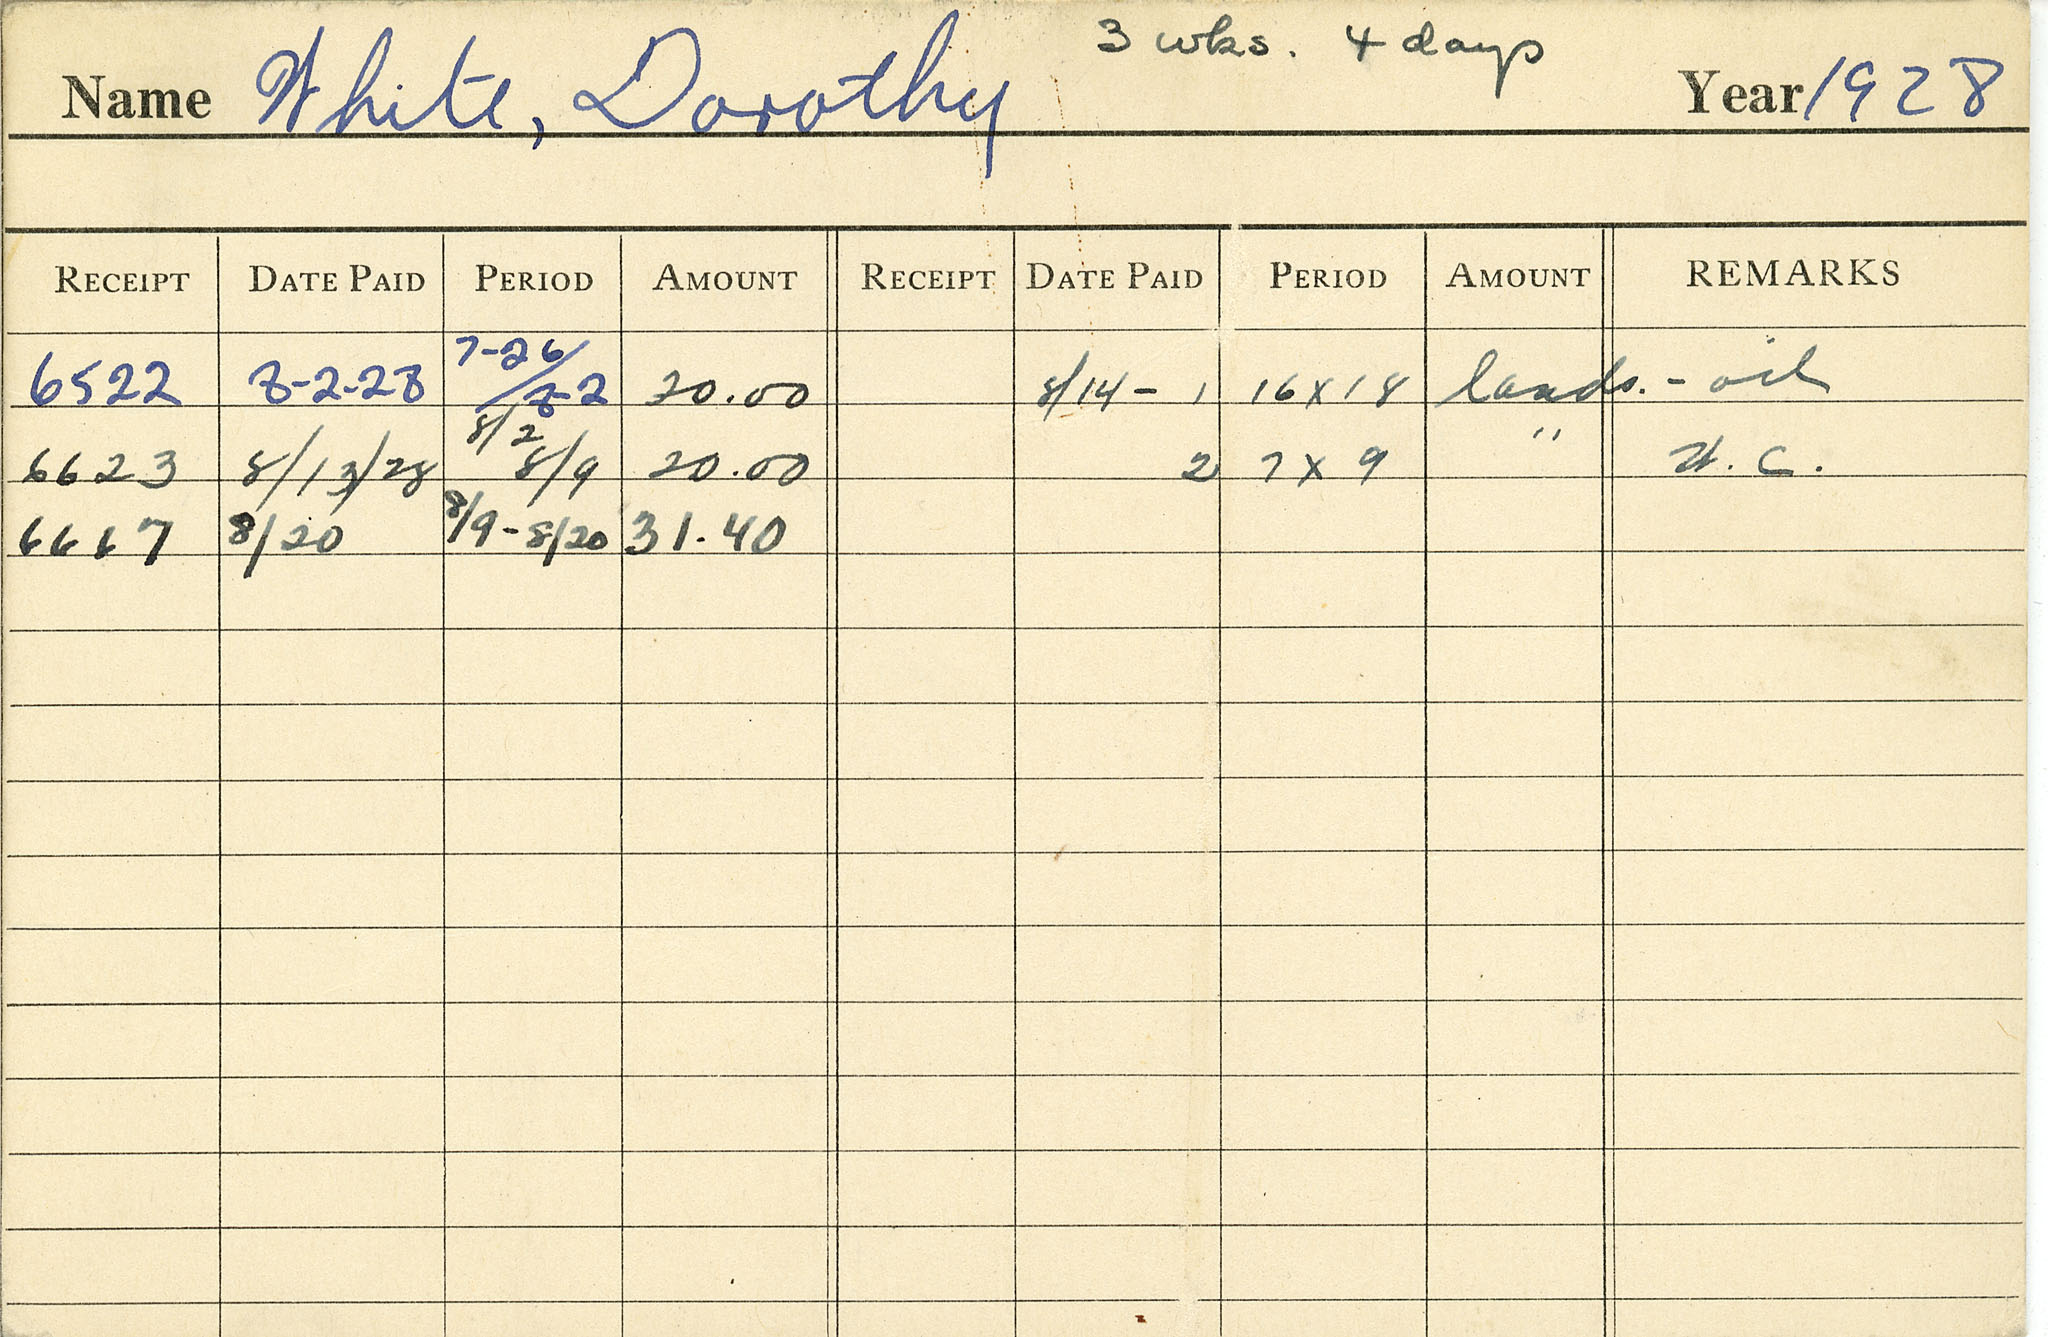 3 wks. 4 days
Name White, Dorothy Year 1928
RECEIPT DATE PAID PERIOD AMOUNT RECEIPT DATE PAID PERIOD AMOUNT REMARKS
6522 8-2-28 7-26/8-2 20.00 8/14- 1 16 x 18 lands. - oil
6623 8/13/28 8/2 8/9 20.00 2 7 x 9 " W. C.
6667 8/20 8/9-8/20 31.40